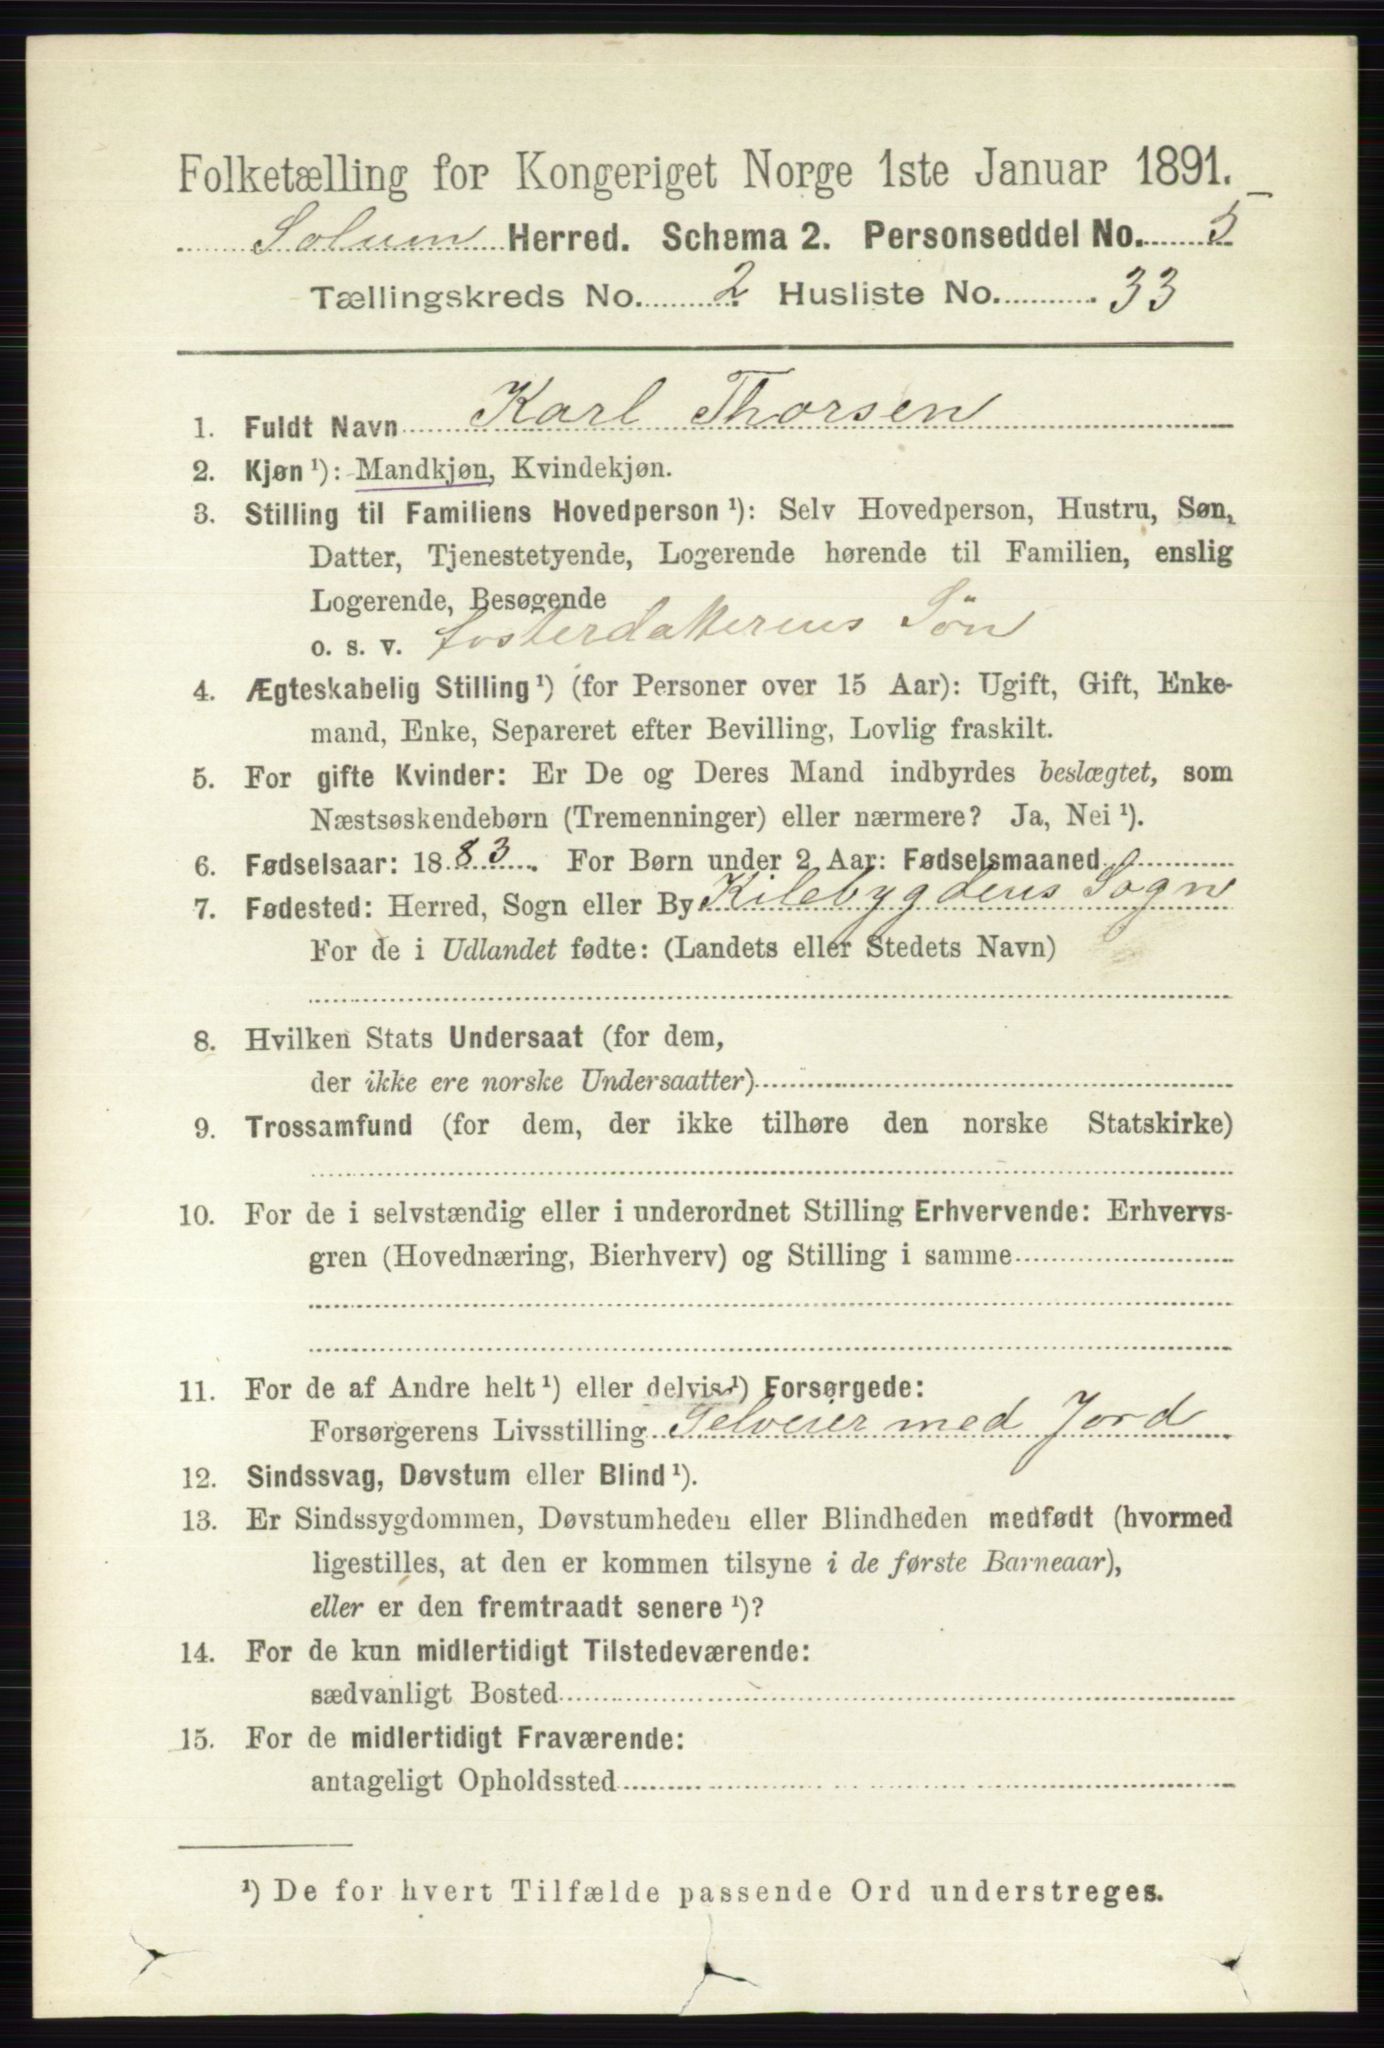 Folketælling for Kongeriget Norge 1ste Januar 1891.
Solum Herred. Schema 2. Personseddel No. 5
Tællingskreds No. 2 Husliste No. 33
1. Fuldt Navn Karl Thorsen
2. Kjøn ¹): Mandkjøn, Kvindekjøn.
3. Stilling til Familiens Hovedperson ¹): Selv Hovedperson, Hustru, Søn,
Datter, Tjenestetyende, Logerende hørende til Familien, enslig
Logerende, Besøgende
o. s. v. fosterdatterens Sön
4. Ægteskabelig Stilling ¹) (for Personer over 15 Aar): Ugift, Gift, Enke-
mand, Enke, Separeret efter Bevilling, Lovlig fraskilt.
5. For gifte Kvinder: Er De og Deres Mand indbyrdes beslægtet, som
Næstsøskendebørn (Tremenninger) eller nærmere? Ja, Nei ¹).
6. Fødselsaar: 1883. For Børn under 2 Aar: Fødselsmaaned
7. Fødested: Herred, Sogn eller By Kilebygdens Sogn
For de i Udlandet fødte: (Landets eller Stedets Navn)
8. Hvilken Stats Undersaat (for dem,
der ikke ere norske Undersaatter)
9. Trossamfund (for dem, der ikke tilhøre den norske Statskirke)
10. For de i selvstændig eller i underordnet Stilling Erhvervende: Erhvervs-
gren (Hovednæring, Bierhverv) og Stilling i samme
11. For de af Andre helt ¹) eller delvis ¹) Forsørgede:
Forsørgerens Livsstilling Selveier med Jord
12. Sindssvag, Døvstum eller Blind ¹).
13. Er Sindssygdommen, Døvstumheden eller Blindheden medfødt (hvormed
ligestilles, at den er kommen tilsyne i de første Barneaar),
eller er den fremtraadt senere ¹)?
14. For de kun midlertidigt Tilstedeværende:
sædvanligt Bosted
15. For de midlertidigt Fraværende:
antageligt Opholdssted
¹) De for hvert Tilfælde passende Ord understreges.